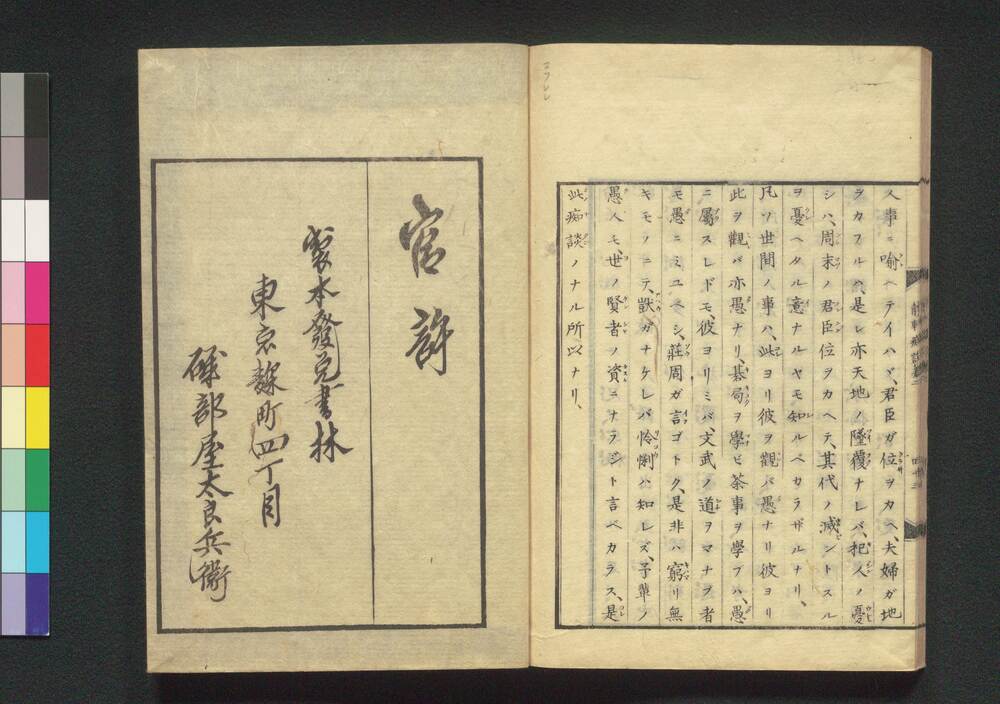 人事ニ喩ヘテイハヾ、君臣ガ位ヲカヘ、夫婦ガ地
ヲカフルハ、是レ亦天地ノ墜覆ナレバ、杞人ノ憂
シハ、周末ノ君臣位ヲカヘテ、其代ノ滅ントスル
ヲ憂ヘタル意ナルヤモ知ルベカラザルナリ、
凡ソ世間ノ事ハ、此ヨリ彼ヲ觀バ愚ナリ彼ヨリ
此ヲ觀バ亦愚ナリ、碁局ヲ學ビ茶事ヲ學ブハ、愚
ニ屬スレドモ、彼ヨリミバ、文武ノ道ヲマナブ者
モ愚ニミユベシ、莊周ガ言ゴトク、是非ハ窮リ無
キモノニテ、獃ガナケレバ怜悧ハ知レズ、予輩ノ
愚人モ、世ノ賢者ノ資ニナラジト言ベカラス、是
此痴談ノナル所以ナリ、
官許
製本發兌書林
東京麹町四丁目
磯部屋太良兵衞